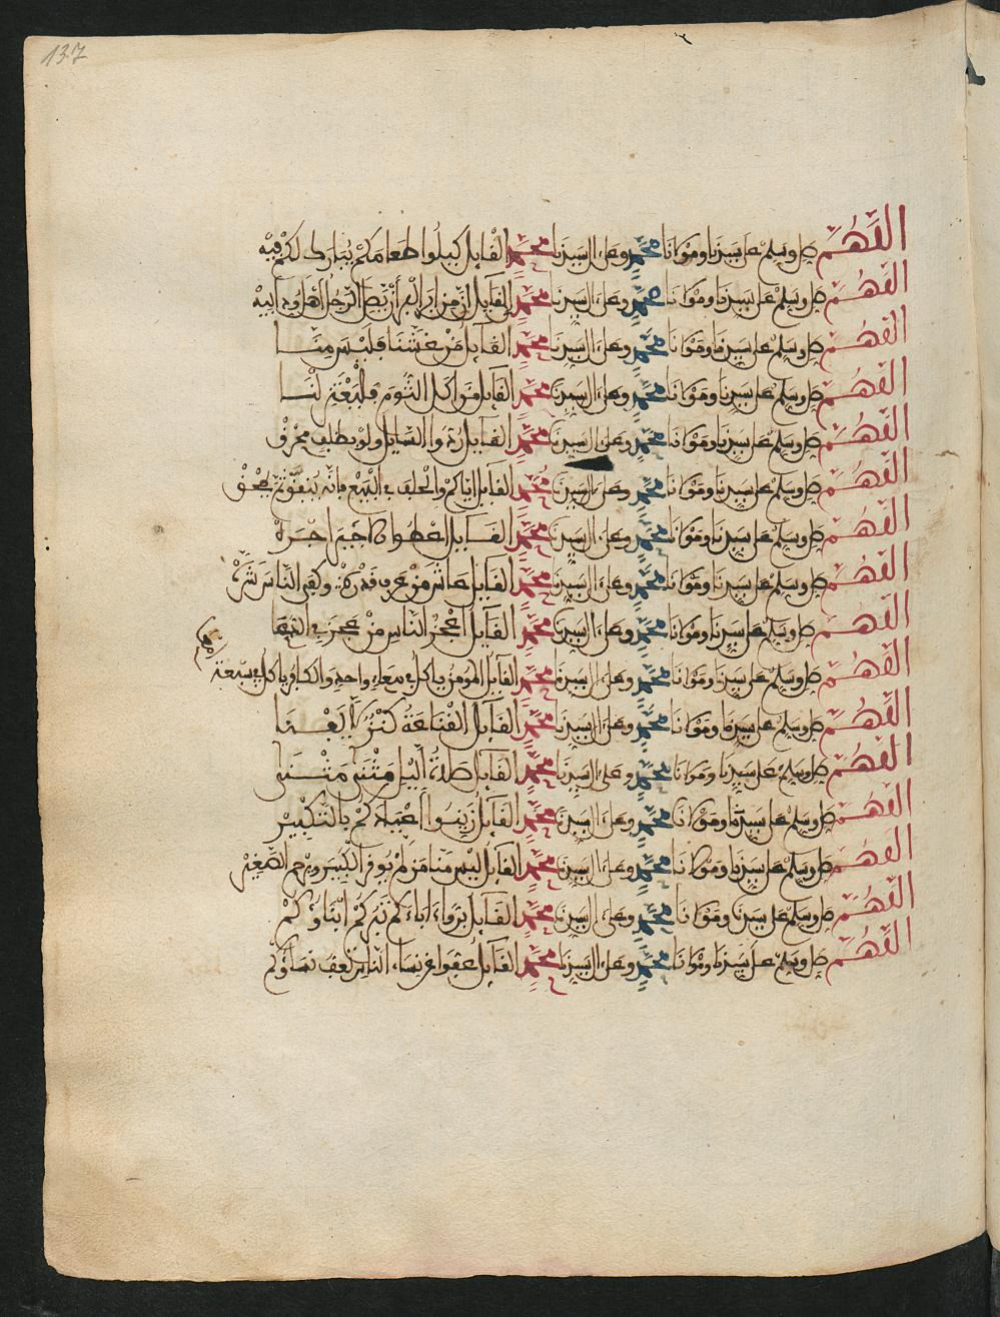 137
اللهم صل وسلم على سيدنا ومولانا محمد وعلى ال سيدنا محمد القايل كيلوا طعامكم يبارك لكم فيه
اللهم صل وسلم على سيدنا ومولانا محمد وعلى ال سيدنا محمد القايل ان من ابر البر أن يصل الرجل اهل ود ابيه
اللهم صل وسلم على سيدنا ومولانا محمد وعلى ال سيدنا محمد القايل من غشنا فليس منا
اللهم صل وسلم على سيدنا ومولانا محمد وعلى ال سيدنا محمد القايل من اكل الثوم فليعتزلنا
اللهم صل وسلم على سيدنا ومولانا محمد وعلى ال سيدنا محمد القايل ردوا السايل ولو بظلف محرق
اللهم صل وسلم على سيدنا ومولانا محمد وعلى ال سيدنا محمد القايل اياكم والحلف في البيع فانه ينفق ثم يمحق
اللهم صل وسلم على سيدنا ومولانا محمد وعلى ال سيدنا محمد القايل اعطوا الاجير اجره
اللهم صل وسلم على سيدنا ومولانا محمد وعلى ال سيدنا محمد القايل عاش من عرف قدره وكفى الناس شره
اللهم صل وسلم على سيدنا ومولانا محمد وعلى ال سيدنا محمد القايل اعجز الناس من عجز في الدعا
اللهم صل وسلم على سيدنا ومولانا محمد وعلى ال سيدنا محمد القايل المومن ياكل في معاء واحد والكافر ياكل في سبعة
اللهم صل وسلم على سيدنا ومولانا محمد وعلى ال سيدنا محمد القايل القناعة كنز لا يفنا
اللهم صل وسلم على سيدنا ومولانا محمد وعلى ال سيدنا محمد القايل صلاة اليل مثنى مثنى
اللهم صل وسلم على سيدنا ومولانا محمد وعلى ال سيدنا محمد القايل زينوا اعيادكم بالتكبير
اللهم صل وسلم على سيدنا ومولانا محمد وعلى ال سيدنا محمد القايل ليس منا من لم يوفر الكبير ويرحم الصغير
اللهم صل وسلم على سيدنا ومولانا محمد وعلى ال سيدنا محمد القايل بروا اباءكم تبركم ابناوكم
اللهم صل وسلم على سيدنا ومولانا محمد وعلى ال سيدنا محمد القايل عفوا عن نساء الناس تعف نساوكم